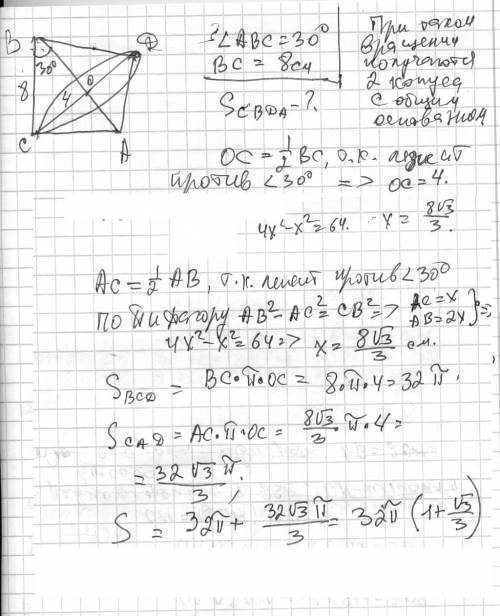 ∠ABC = 30°
BC = 8см
S_CBDA - ?
При таком
вращении
получаются
2 конуса
с общим
основанием
B
D
30°
8
4
O
C
A
OC = 1/2 BC, т.к. лежит
против ∠30° => OC = 4.
4x² - x² = 64. x = 8√3/3.
AC = 1/2 AB, т.к. лежит против ∠30°
по Пифагору AB² - AC² = CB² => AC = x
AB = 2x } =>
4x² - x² = 64 => x = 8√3/3 см.
S_BCD = BC·π·OC = 8·π·4 = 32π.
S_CAD = AC·π·OC = 8√3/3·π·4 =
= 32√3π/3;
S = 32π + 32√3π/3 = 32π(1 + √3/3)